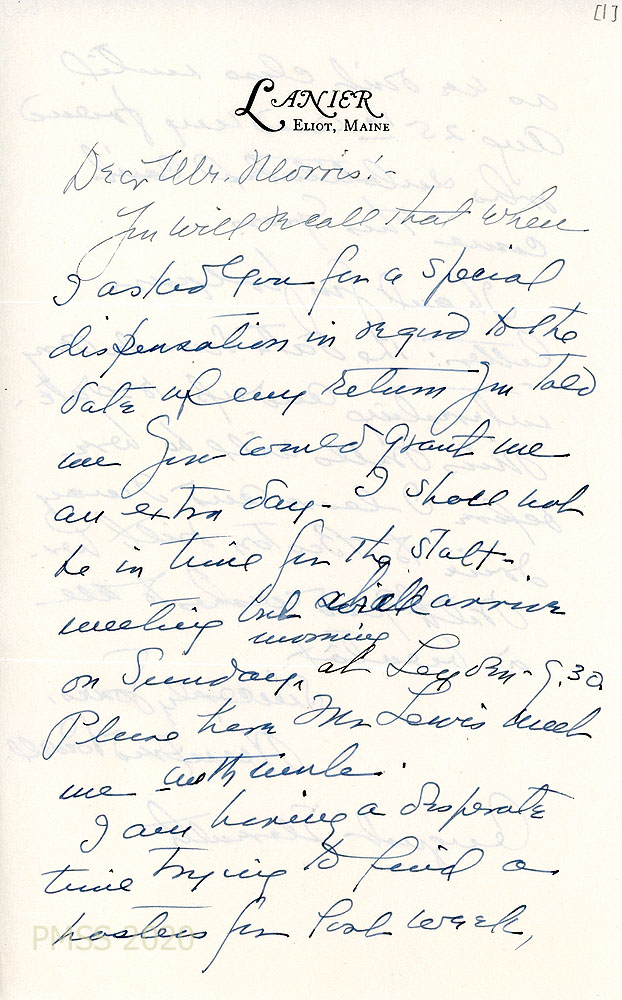 [1]
LANIER
ELIOT, MAINE
Dear Mr. Morris:-
You will recall that when
I asked you for a special
dispensation in regard to the
date of my return you told
me you would grant me
an extra day- I shall not
be in time for the staff-
meeting but shall arrive
on Sunday, morning at Leyden- 9.30
Please have Mr Lewis meet
me with mule.
I am having a desperate
time trying to find a
hostess for Post week,
PMSS 2020